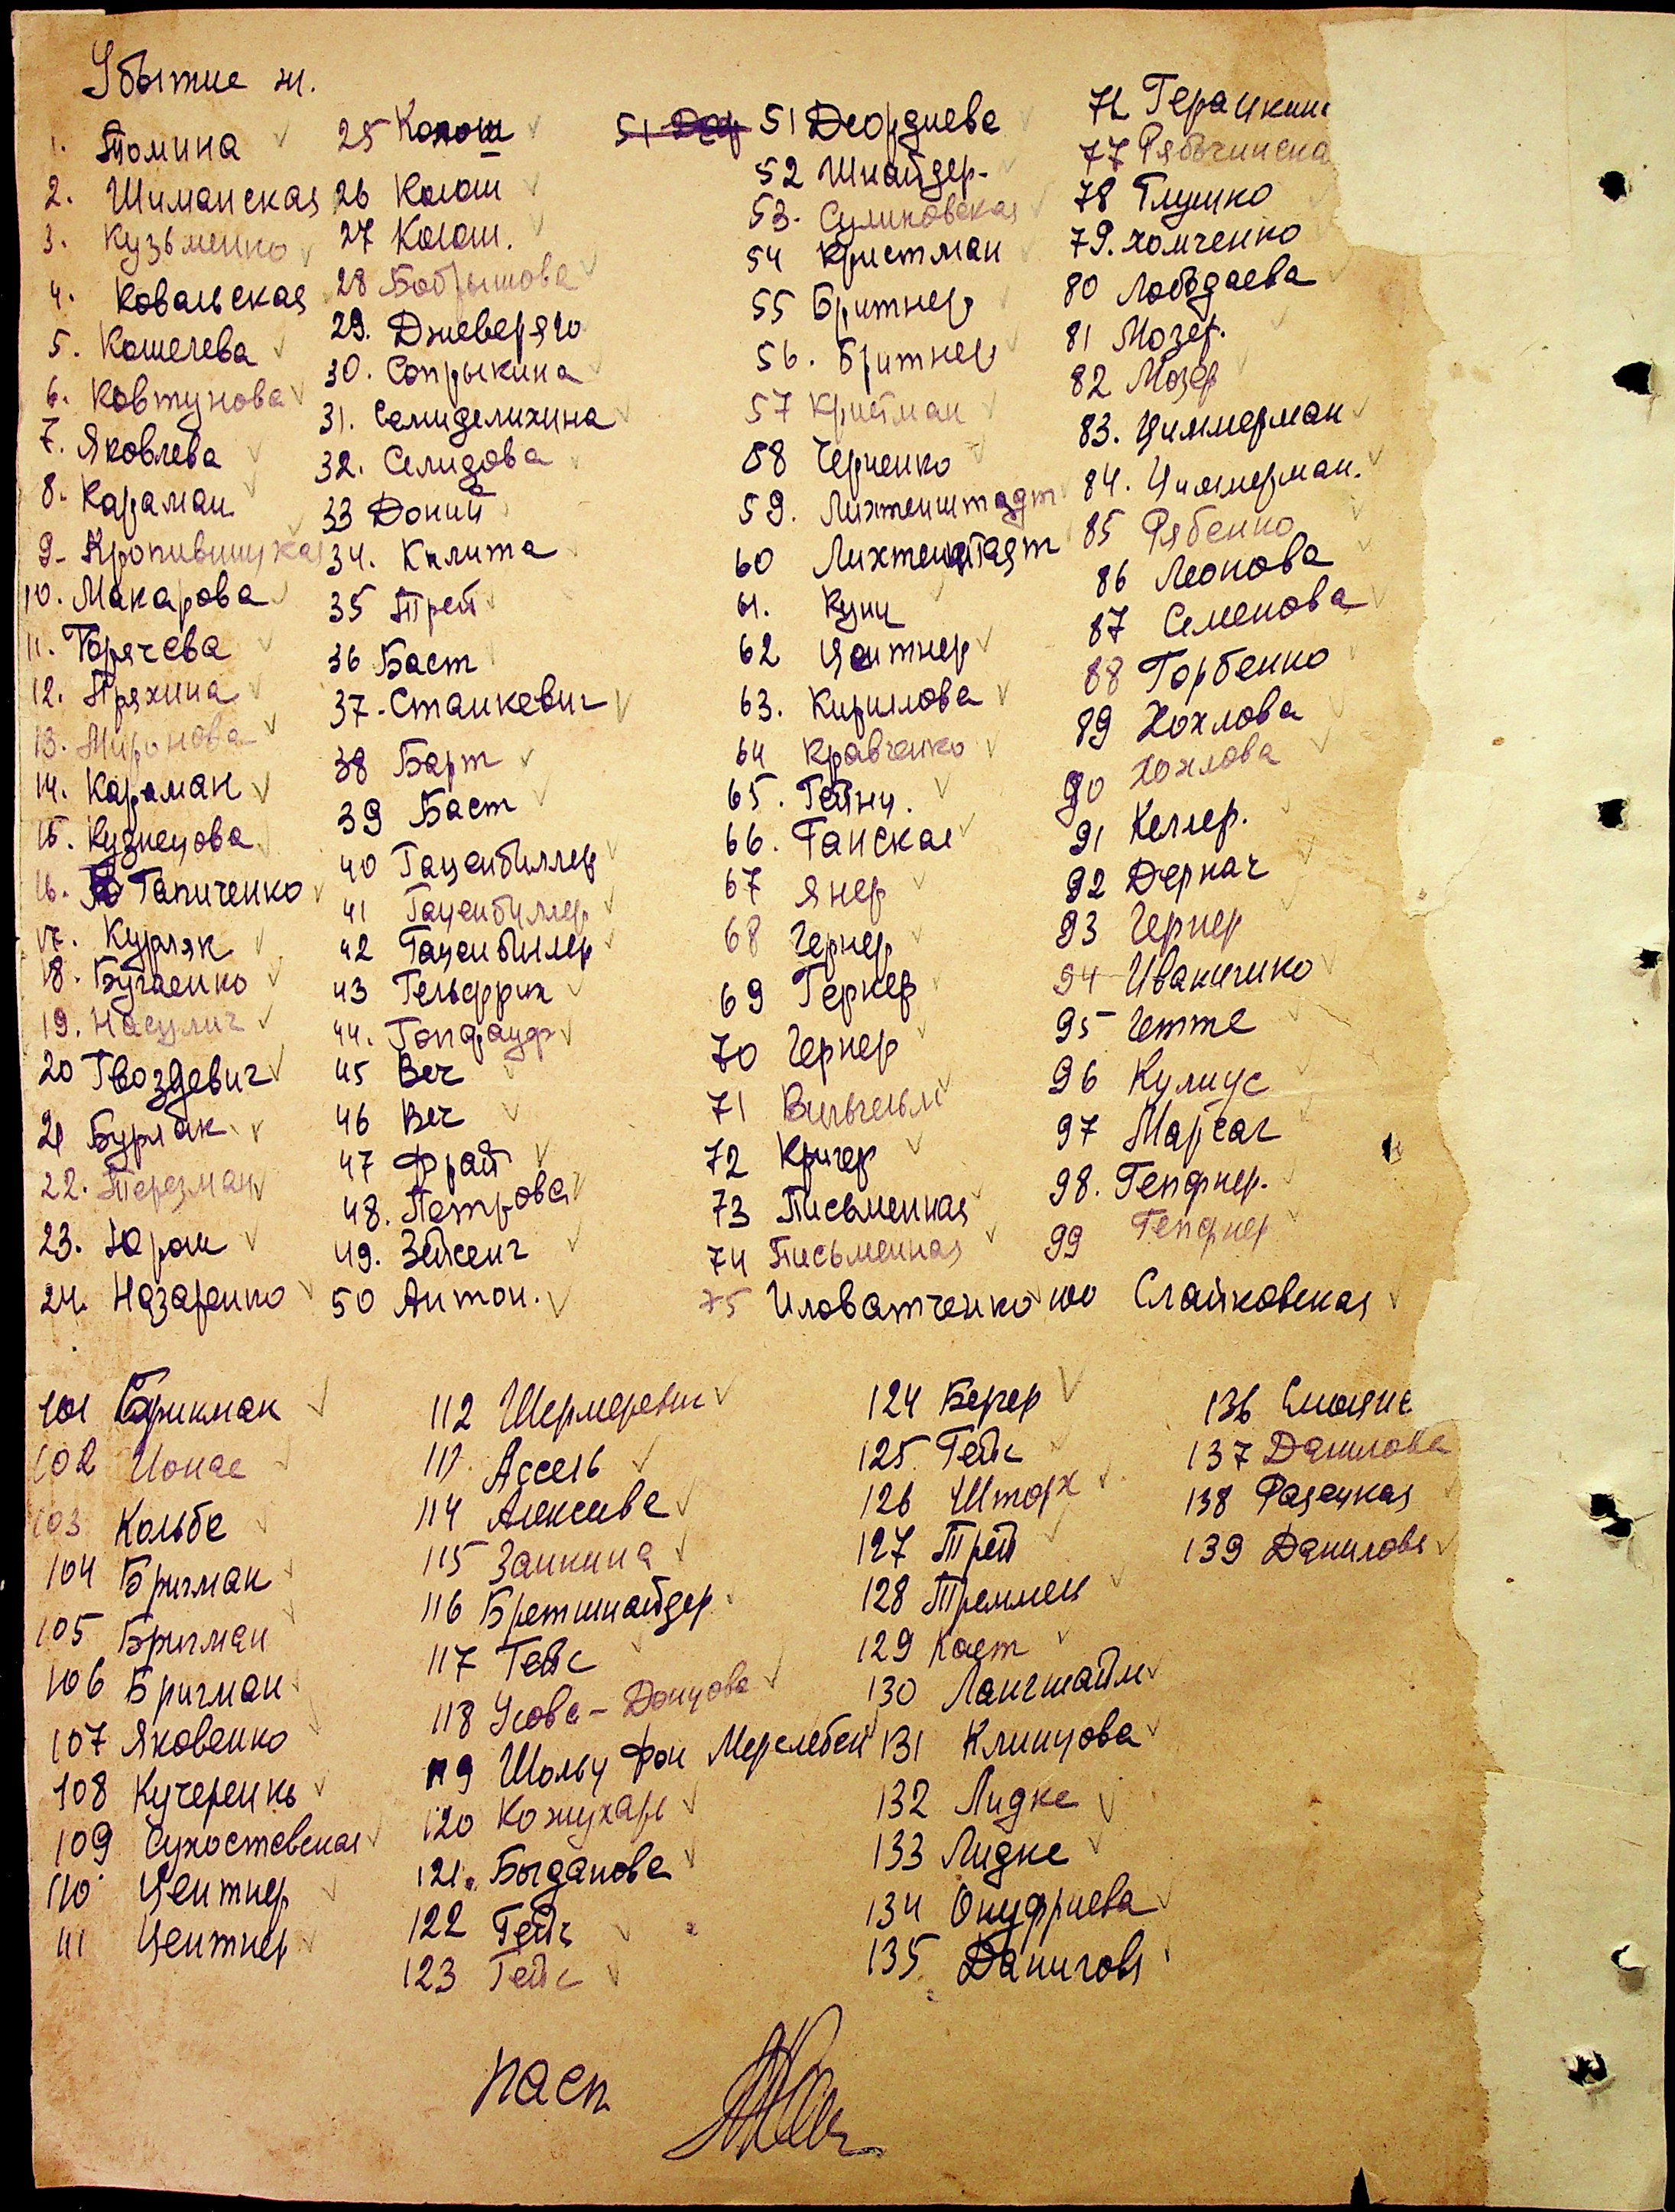 Убытие ж.
1. Томина
2. Шиманская
3. Кузьменко
4. Ковальская
5. Кошелева
6. Ковтунова
7. Яковлева
8. Караман
9- Кропивницкая
10. Макарова
11. Горячева
12. Пряхина
13. Миронова
14. Караман
15. Кузнецова
16. Гапиченко
17. Курляк
18. Бугаенко
19. Насулич
20 Гвоздевич
21 Бурлак
22. Терезман
23. Юрош
24. Назаренко
25 Колош
26 Колош
27 Колош.
28 Бобрышова
29. Дневеряго
30. Сопрыкина
31. Селиделихина
32. Селидова
33 Доний
34. Калита
35 Трей
36 Баст
37-Станкевич
38 Барт
39 Баст
40 Гаценбиллер
41 Гаценбиллер
42 Гаценбиллер
43 Гельфрих
44. Гопфауф
45 Веч
46 Веч
47 Фрай
48. Петрова
49. Зейсенг
50 Антон.
51 Деордиева
52 Шнайдер-
53- Сулиховская
54 Кристман
55 Бритнер
56. Бритнер
57 Кристман
58 Черненко
59. Лихтенштадт
60 Лихтенштадт
61. Кунц
62 Центнер
63. Кириллова
64 Кравченко
65. Гейнц.
66. Ганская
67 Янер
68 Гернер
69 Гернер
70 Гернер
71 Вильгельм
72 Кригер
73 Письменная
74 Письменная
75 Иловатченко
76 Геращкин
77 Рябчинска
78 Глушко
79. Хомченко
80 Лобдаева
81 Мозер.
82 Мозер
83. Циммерман
84. Циммерман.
85 Рябенко
86 Леонова
87 Семенова
88 Горбенко
89 Хохлова
90 Хохлова
91 Келлер.
92 Деркач
93 Гернер
94 Иваничко
95 Гетте
96 Кулиус
97 Марсал
98. Гепфнер.
99 Гепфнер
100 Слайковская
101 Брикман
102 Ионас
103 Кольбе
104 Бригман
105 Бригман
106 Бригман
107 Яковенко
108 Кучеренко
109 Сухоставская
110 Центнер
111 Центнер
112 Шермеревич
113. Ассель
114 Алексеева
115 Заикина
116 Бретшнайдер
117 Гейс
118 Усова - Донцова
119 Шольц фон Мерслебен
120 Кожухарь
121. Богданова
122 Гейс
123 Гейс
124 Бегер
125 Гейс
126 Шторх
127 Трей
128 Треммель
129 Каст
130 Лангшайм
131 Клинцова
132 Лидке
133 Лидке
134 Онуфриева
135 Данилова
136
137 Данилова
138 Фазецкая
139 Данилова